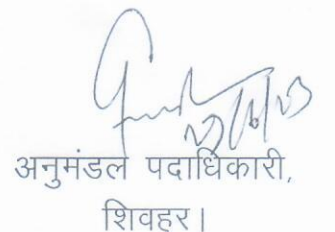 अनुमंडल पदाधिकारी,
शिवहर।